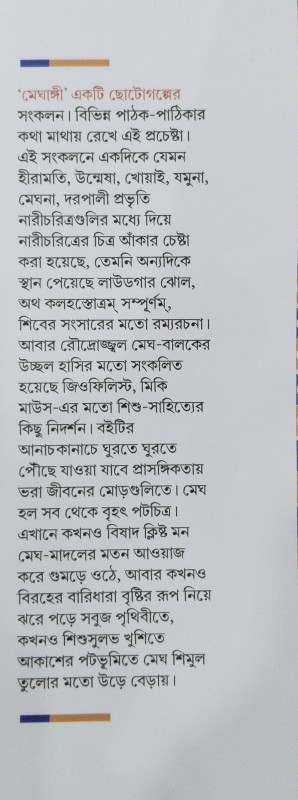 ‘মেঘাঙ্গী’ একটি ছোটোগল্পের
সংকলন। বিভিন্ন পাঠক-পাঠিকার
কথা মাথায় রেখে এই প্রচেষ্টা।
এই সংকলনে একদিকে যেমন
হীরামতি, উন্মেষা, খোয়াই, যমুনা,
মেঘনা, দরপালী প্রভৃতি
নারীচরিত্রগুলির মধ্যে দিয়ে
নারীচরিত্রের চিত্র আঁকার চেষ্টা
করা হয়েছে, তেমনি অন্যদিকে
স্থান পেয়েছে লাউডগার ঝোল,
অথ কলহস্তোত্রম্ সম্পূর্ণম্,
শিবের সংসারের মতো রম্যরচনা।
আবার রৌদ্রোজ্জ্বল মেঘ-বালকের
উচ্ছল হাসির মতো সংকলিত
হয়েছে জিওফিলিস্ট, মিকি
মাউস-এর মতো শিশু-সাহিত্যের
কিছু নিদর্শন। বইটির
আনাচকানাচে ঘুরতে ঘুরতে
পৌঁছে যাওয়া যাবে প্রাসঙ্গিকতায়
ভরা জীবনের মোড়গুলিতে। মেঘ
হল সব থেকে বৃহৎ পটচিত্র।
এখানে কখনও বিষাদ ক্লিষ্ট মন
মেঘ-মাদলের মতন আওয়াজ
করে গুমড়ে ওঠে, আবার কখনও
বিরহের বারিধারা বৃষ্টির রূপ নিয়ে
ঝরে পড়ে সবুজ পৃথিবীতে,
কখনও শিশুসুলভ খুশিতে
আকাশের পটভূমিতে মেঘ শিমুল
তুলোর মতো উড়ে বেড়ায়।